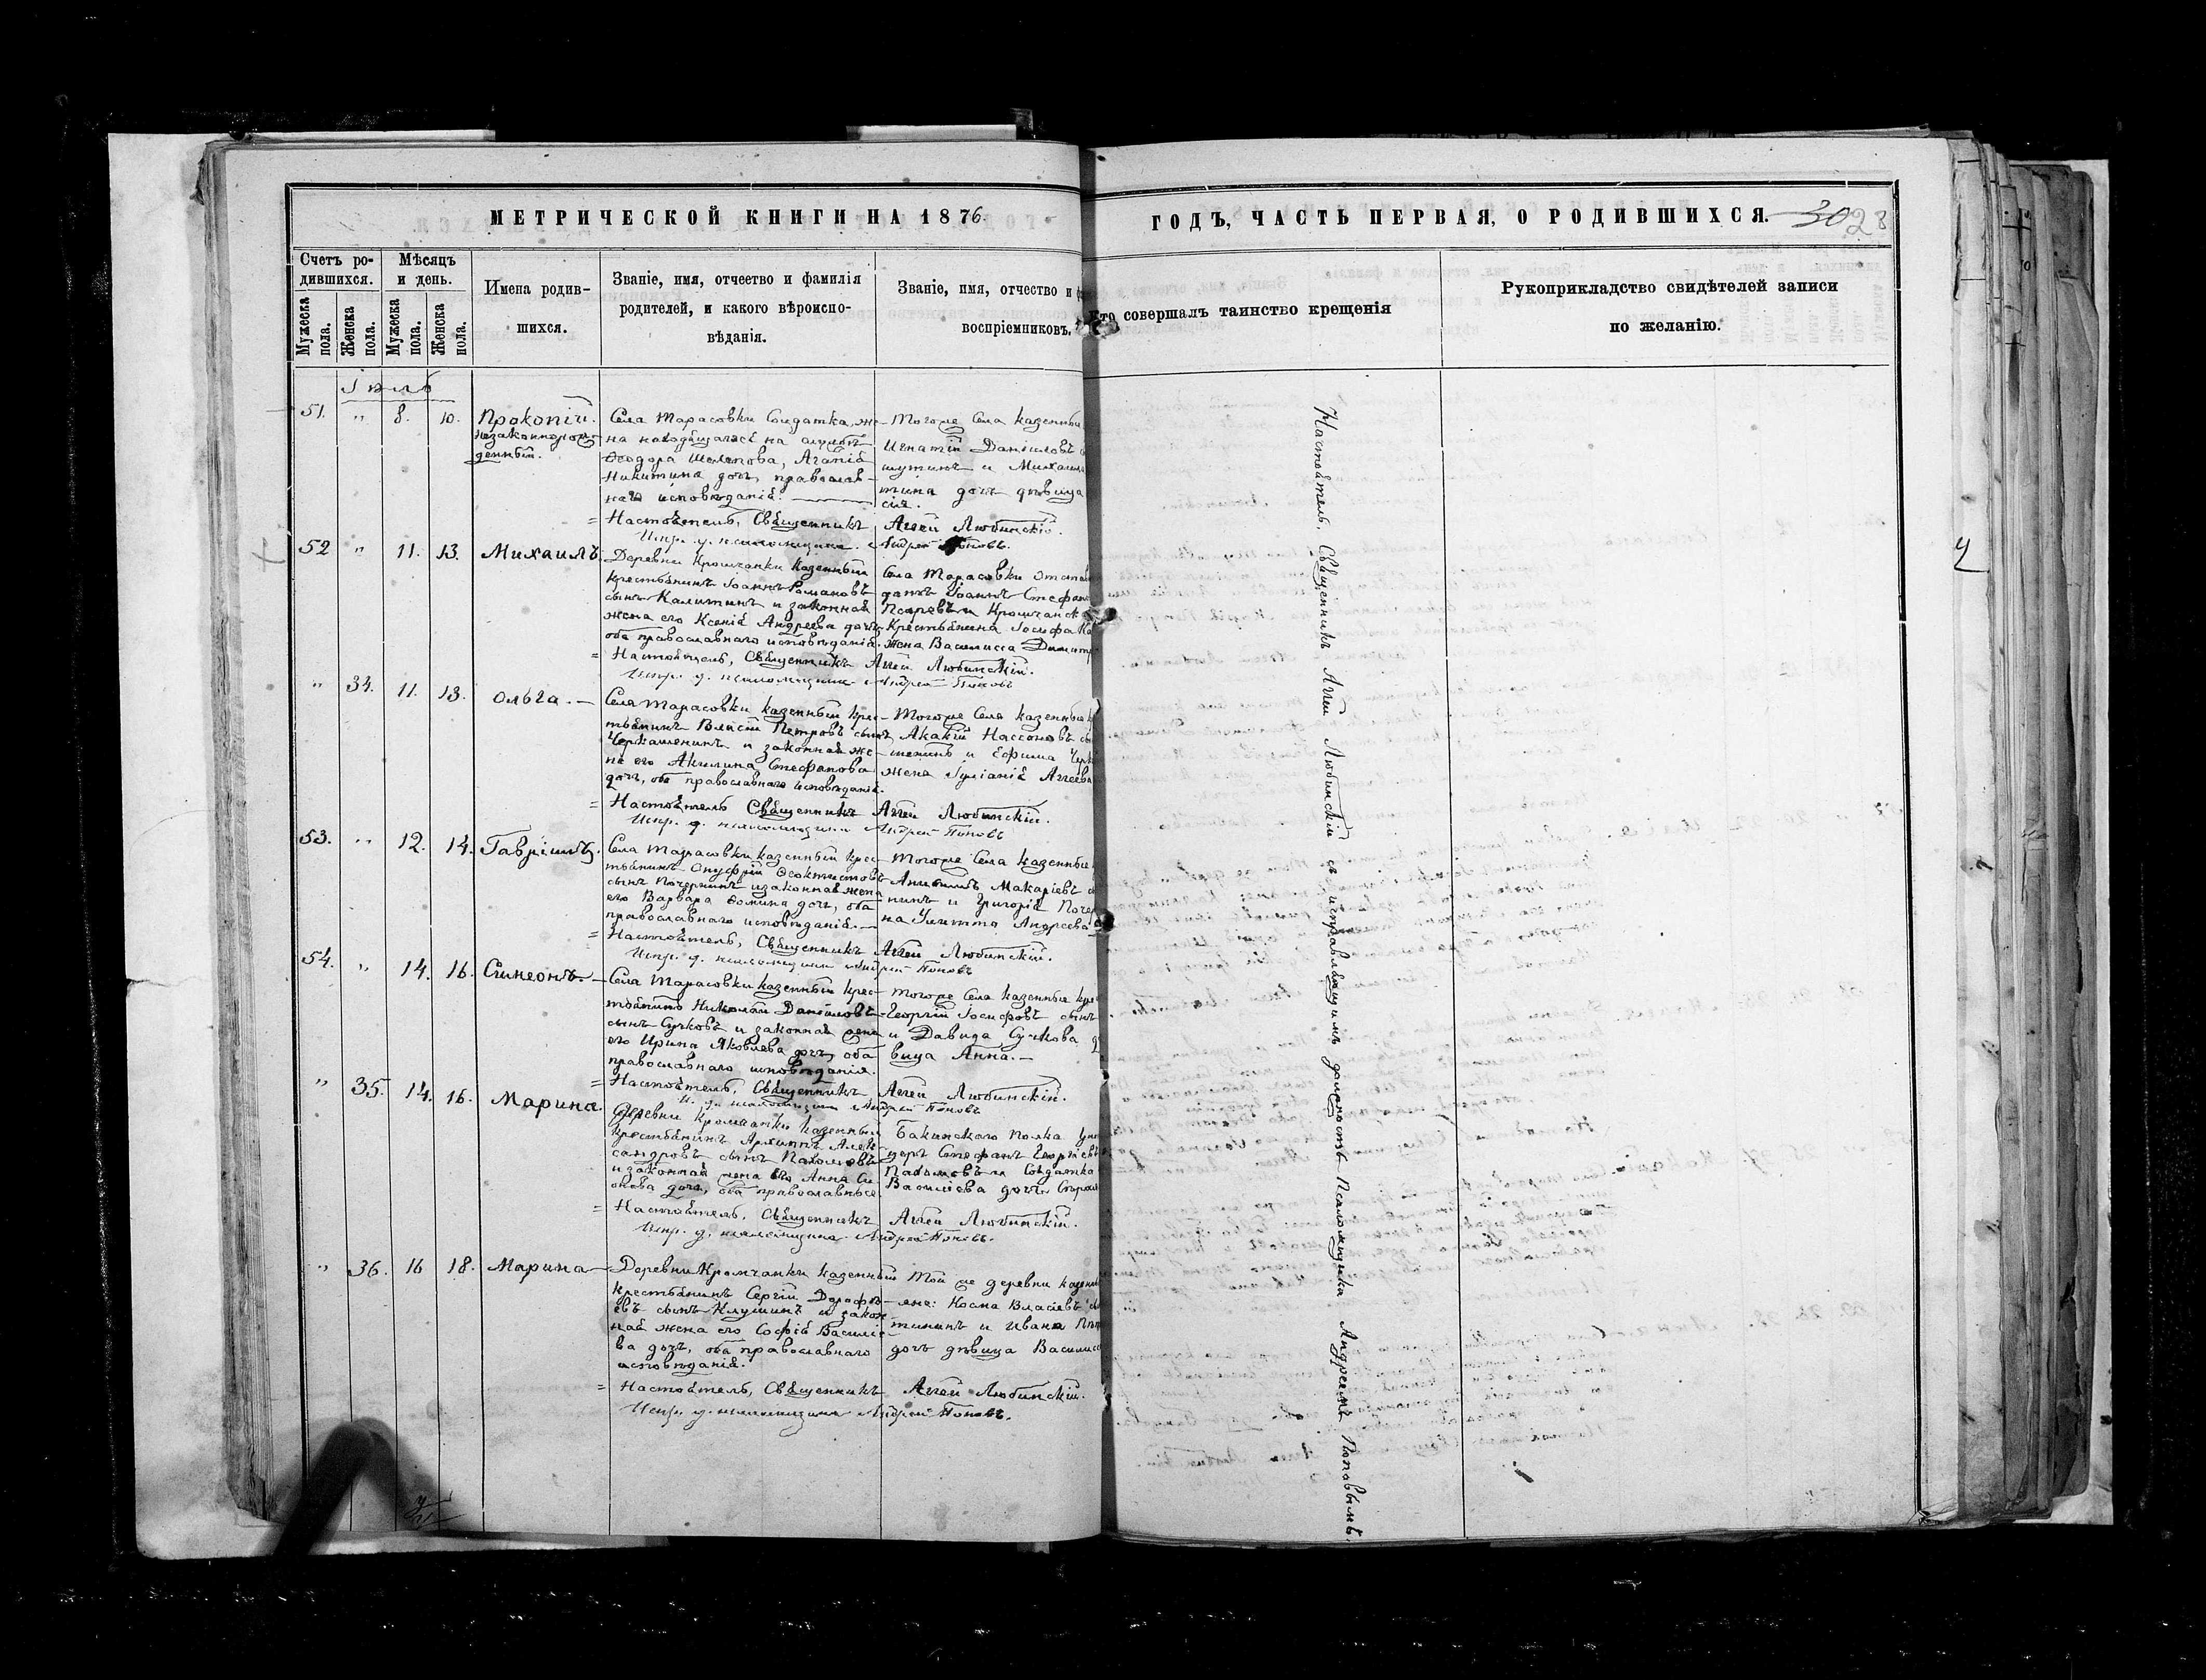 МЕТРИЧЕСКОЙ КНИГИ НА 1876.
ГОДЪ, ЧАСТЬ ПЕРВАЯ, О РОДИВШИХСЯ.
Счетъ ро-
дившихся.
Мѣсяцъ
и день.
Мужеска
пола.
Женска
пола.
Мужеска
пола.
Женска
пола.
Имена родив-
шихся.
Званіе, имя, отчество и фамилія
родителей, и какого вѣроиспо-
вѣданія.
Званіе, имя, отчество и
воспріемниковъ.
Кто совершалъ таинство крещенія
Рукоприкладство свидѣтелей записи
по желанію.
Іюль
51. " 8. 10. Прокопій.
незаконнорож-
денный.
Села Тарасовки Солдатка, же-
на находящагося на службѣ
Ѳеодора Шелепова, Агапія
Никитина дочь, православ-
наго исповѣданія.
Тогоже Села казенные
Игнатій Даніиловъ
и Михаила
тина дочь дѣвица
сія.
Настоятель, Священникъ Аггей Любинскій.
Испр. д. псаломщика Андрей Поповъ.
52 " 11. 13. Михаилъ.
Деревни Кромчанки казенный
крестьянинъ Іоаннъ Романовъ
сынъ Калитинъ и законная
жена его Ксенія Андреева дочь,
оба православнаго исповѣданія.
Села Тарасовки
Іоаннъ Стефан
Крестьянина Іосифа
жена Василиса Димитр
Настоятель, Священникъ Аггей Любинскій.
Испр. д. псаломщика Андрей Поповъ
" 34. 11. 13. Ольга.
Села Тарасовки казенный крес-
тьянинъ Власій Петровъ сынъ
Черкашенинъ и законная же-
на его Акилина Стефанова
дочь, оба православнаго исповѣданія.
Тогоже Села казенные
Акакій Нассоновъ
шенинъ и Ефима
жена Іуліанія Аггеева
Настоятель Священникъ Аггей Любинскій.
Испр. д. псаломщика Андрей Поповъ
53. " 12. 14. Гавріилъ.
Села Тарасовки казенный крес-
тьянинъ Онуфрій Ѳеоктистовъ
сынъ Почернинъ и законная жена
его Варвара Ѳомина дочь, оба
православнаго исповѣданія.
Тогоже Села казенные
Макаріевъ
нинъ и Григорія
на Улитта Андреева
Настоятель, Священникъ Аггей Любинскій.
Испр. д. псаломщика Андрей Поповъ
54. " 14. 16. Симеонъ.
Села Тарасовки казенный крес-
тьянинъ Николай Даніиловъ
сынъ Сучковъ и законная жена
его Ирина Яковлева дочь, оба
православнаго исповѣданія.
Тогоже Села казенные
Георгій Іосифовъ сынъ
и Давида Сучкова
вица Анна.
Настоятель, Священникъ Аггей Любинскій.
И. д. псаломщика Андрей Поповъ
" 35. 14. 16. Марина.
Деревни Кромчанки казенный
крестьянинъ Архиппъ Алек-
сандровъ сынъ
и законная жена его Анна
дочь, оба православные
Бакинскаго полка
Стефанъ Георгіевъ
и Солдатка
Василіева дочь
Настоятель, Священникъ Аггей Любинскій.
Испр. д. псаломщика Андрей Поповъ.
" 36. 16 18. Марина
Деревни Кромчанки казенный
крестьянинъ Сергій Дорофѣ-
евъ сынъ Клушинъ и закон
ная жена его Софія Василіе
ва дочь, оба православнаго
исповѣданія.
Той же деревни казенные
яне: Косма Власіевъ
тининъ и Ивана
дочь дѣвица Василиса
Настоятель, Священникъ Аггей Любинскій.
Испр. д. псаломщика Андрей Поповъ.
Настоятель, Священникъ Аггей Любинскій съ исправляющимъ должность Псаломщика Андреемъ Поповымъ.